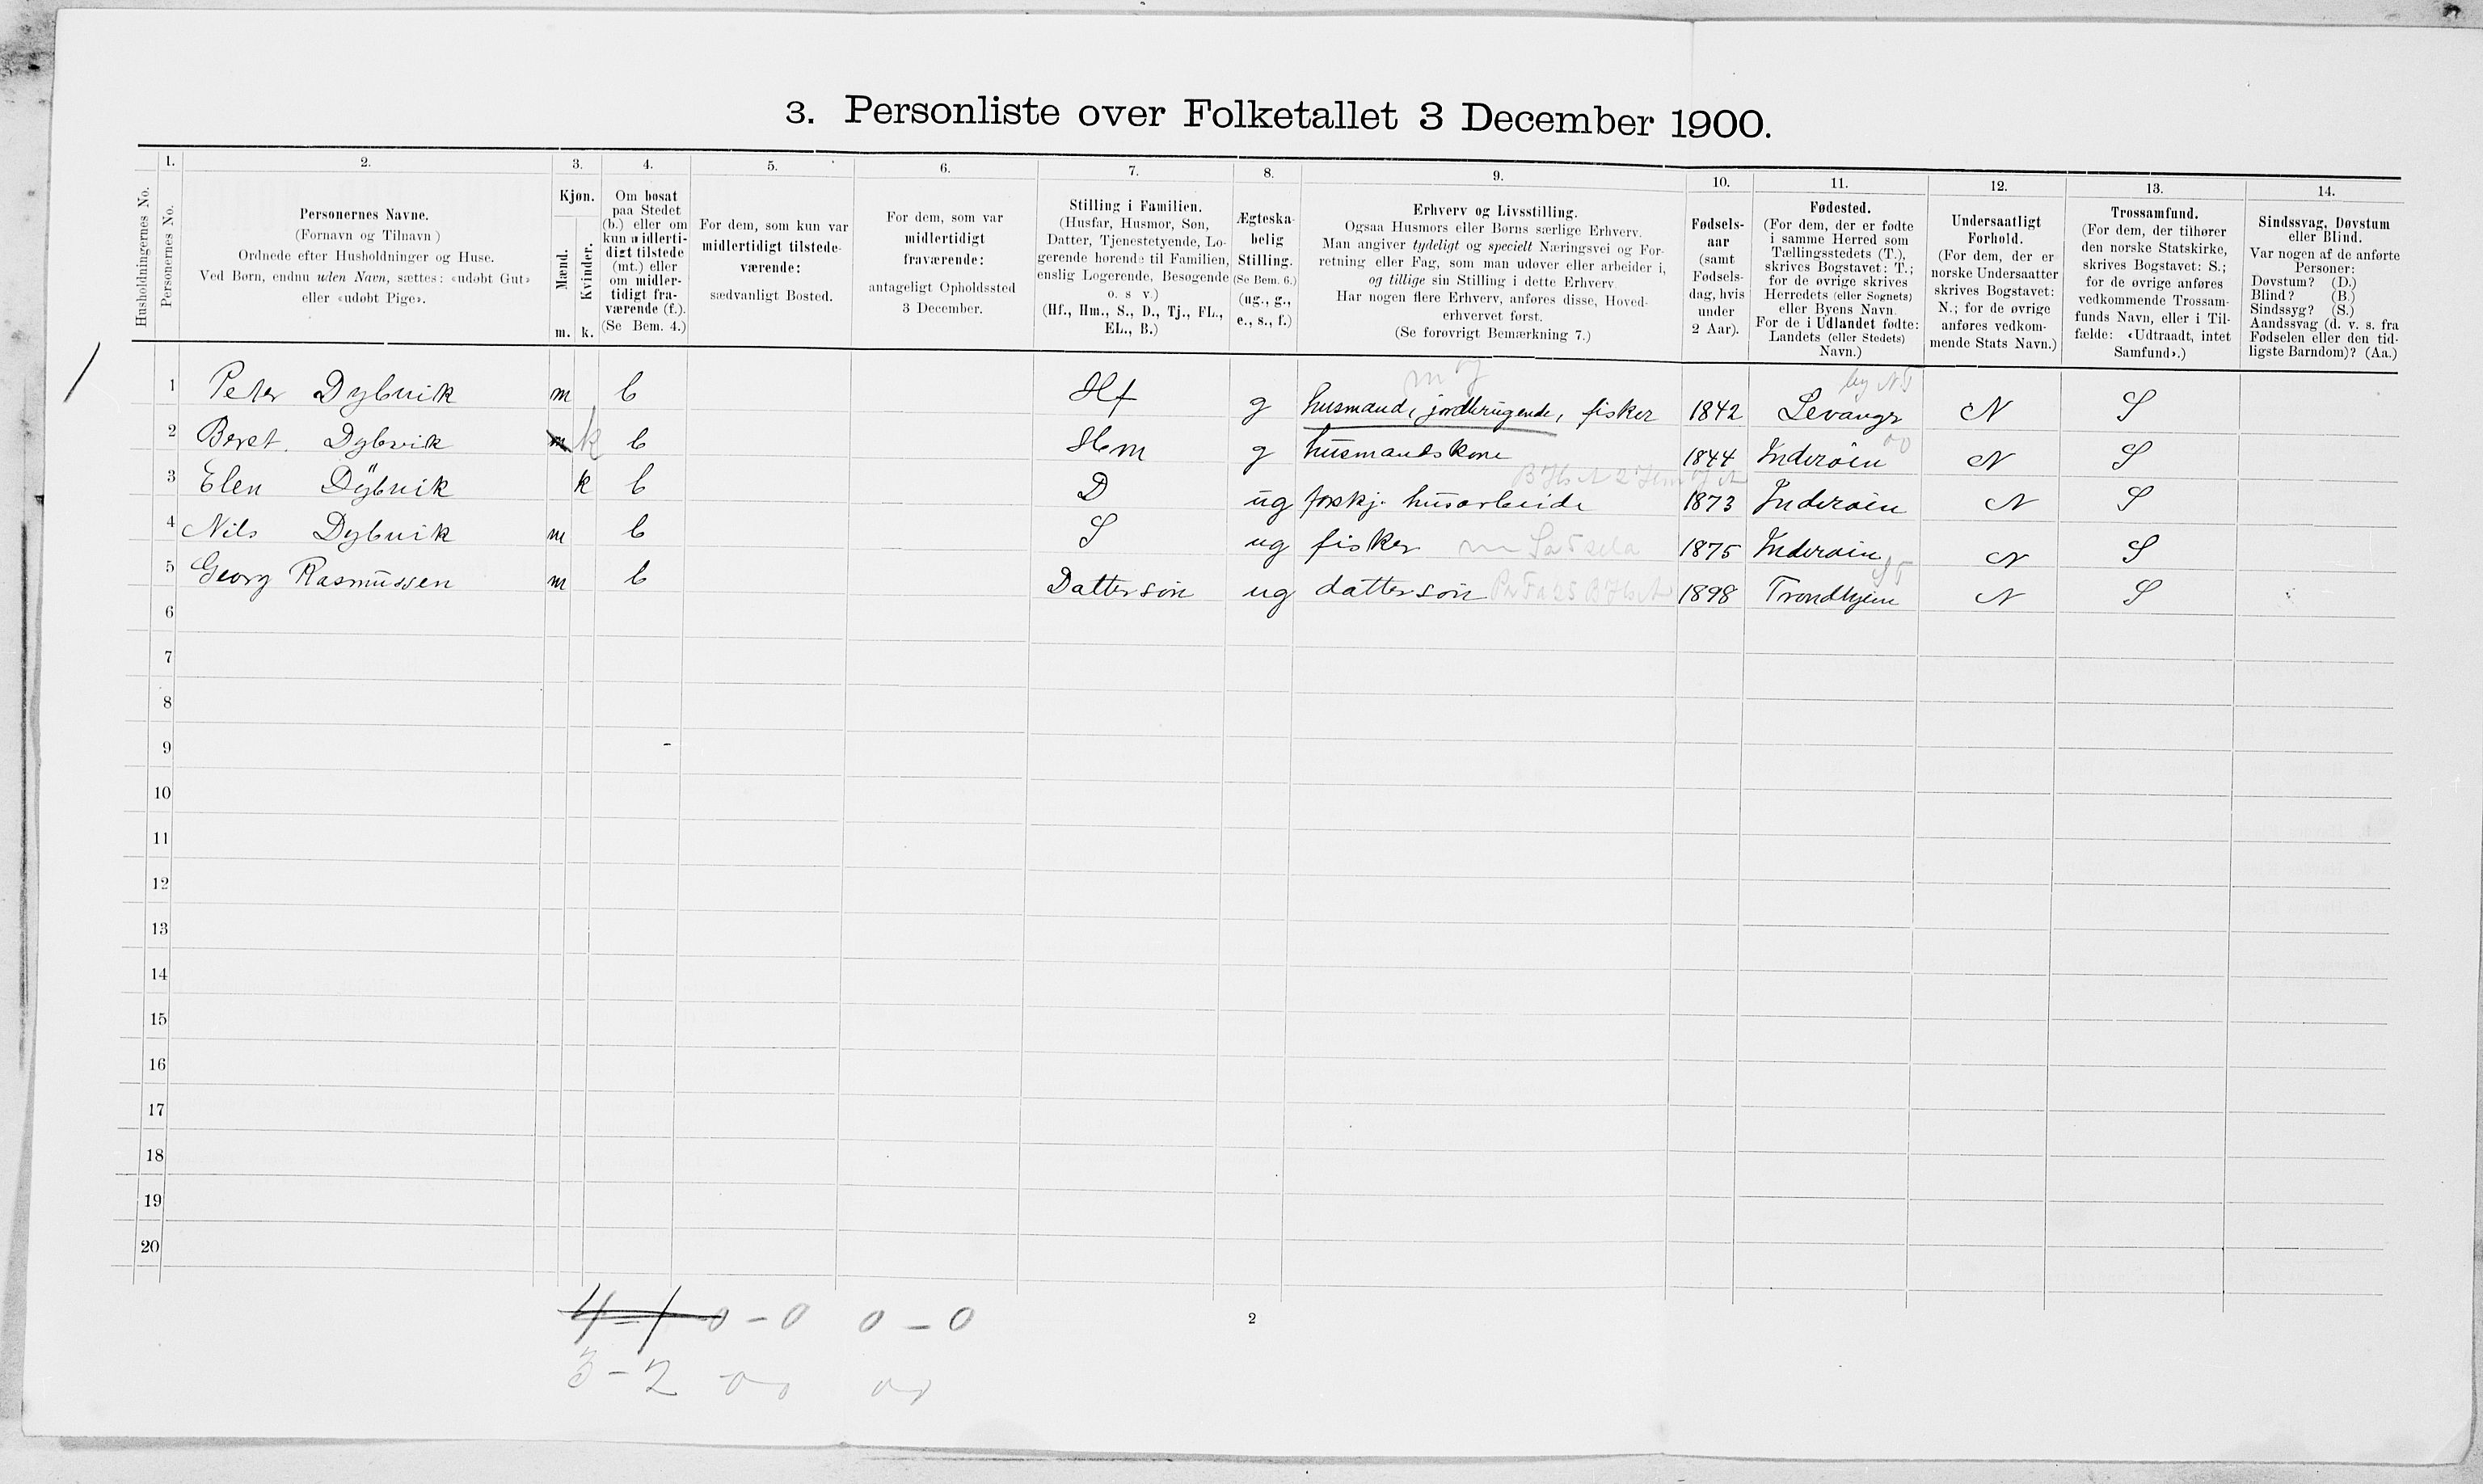 3. Personliste over Folketallet 3 December 1900.
1. 2. 3. 4. 5. 6. 7. 8. 9. 10. 11. 12. 13. 14.
Husholdningernes No.
Personernes No.
Personernes Navne.
(Fornavn og Tilnavn)
Ordnede efter Husholdninger og Huse.
Ved Børn, endnu uden Navn, sættes: «udøbt Gut»
eller «udøbt Pige».
Kjøn.
Mænd.
Kvinder.
m. k.
Om bosat
paa Stedet
(b.) eller om
kun midlerti-
digt tilstede
(mt.) eller
om midler-
tidigt fra-
værende (f.).
(Se Bem. 4.)
For dem, som kun var
midlertidigt tilstede-
værende:
sædvanligt Bosted.
For dem, som var
midlertidigt
fraværende:
antageligt Opholdssted
3 December.
Stilling i Familien.
(Husfar, Husmor, Søn,
Datter, Tjenestetyende, Lo-
gerende hørende til Familien,
enslig Logerende, Besøgende
o. s v.)
(Hf., Hm., S., D., Tj., FL.,
EL., B.)
Ægteska-
belig
Stilling.
(Se Bem. 6.)
(ug., g.,
e., s., f.)
Erhverv og Livsstilling.
Ogsaa Husmors eller Børns særlige Erhverv.
Man angiver tydeligt og specielt Næringsvei og For-
retning eller Fag, som man udøver eller arbeider i,
og tillige sin Stilling i dette Erhverv
Har nogen flere Erhverv, anføres disse, Hoved-
erhvervet først.
(Se forøvrigt Bemærkning 7.)
Fødsels-
aar
(samt
Fødsels-
dag, hvis
under
2 Aar).
Fødested.
(For dem, der er fødte
i samme Herred som
Tællingsstedets (T.),
skrives Bogstavet: T.;
for de øvrige skrives
Herredets (eller Sognets)
eller Byens Navn.
For de i Udlandet fødte:
Landets (eller Stedets)
Navn.)
Undersaatligt
Forhold.
(For dem, der er
norske Undersaatter
skrives Bogstavet:
N.; for de øvrige
anføres vedkom-
mende Stats Navn.)
Trossamfund.
(For dem, der tilhører
den norske Statskirke,
skrives Bogstavet: S.;
for de øvrige anføres
vedkommende Trossam-
funds Navn, eller i Til-
fælde: «Udtraadt, intet
Samfund».)
Sindssvag, Døvstum
eller Blind.
Var nogen af de anførte
Personer:
Døvstum? (D.)
Blind? (B.)
Sindssyg? (S.)
Aandssvag (d. v. s. fra
Fødselen eller den tid-
ligste Barndom)? (Aa.)
1 Peter Dybvik m b Hf g husmand, jordbrugende, fisker 1842 Levanger N S
2 Beret Dybvik m k b Hm g husmandskone 1844 Inderøen N S
3 Elen Dybvik k b D ug forskj. husarbeide 1873 Inderøen N S
4 Nils Dybvik m b S ug fisker 1875 Inderøen N S
5 Georg Rasmussen m b Dattersøn ug datterson 1898 Trondhjem N S
6
7
8
9
10
11
12
13
14
15
16
17
18
19
20
4-1 0-0 0-0
2
3-2